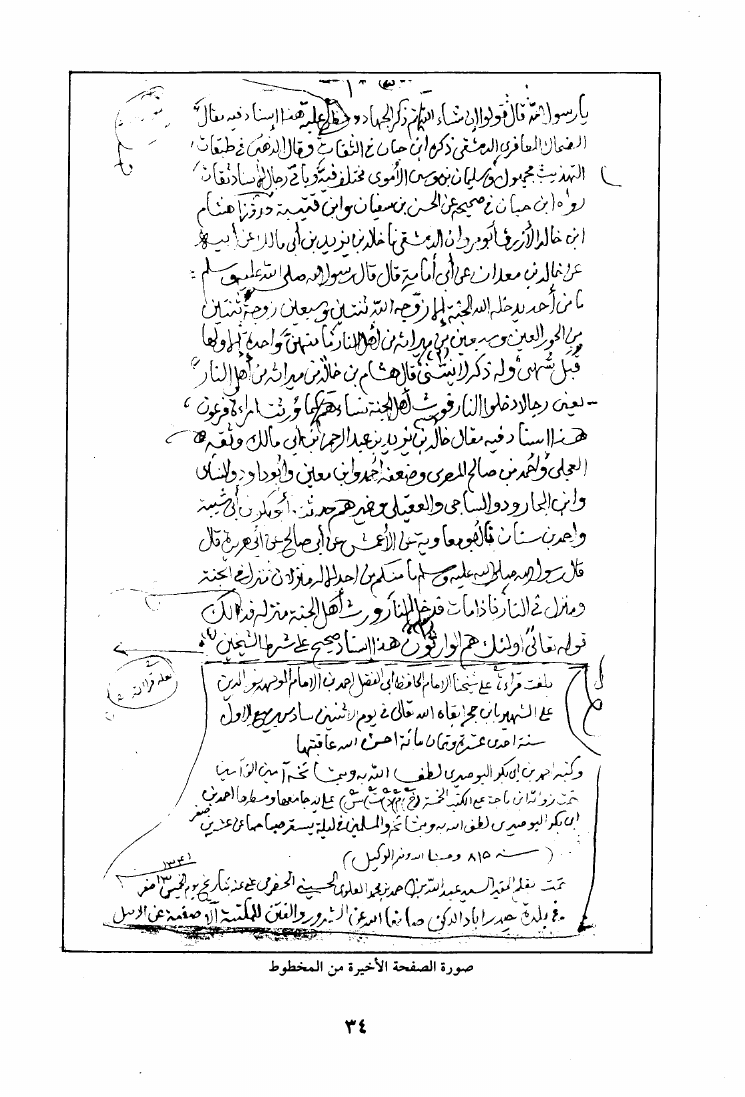 يا رسول الله قال قولوا إن شاء الله ثم ذكر الجهاد هذا إسناد فيه مقال
الضحاك المعافري الدمشقي ذكره ابن حبان في الثقات وقال الذهبي في طبقات
التهذيب مجهول وسليمان بن موسى الأموي مختلف فيه وباقي رجال الإسناد ثقات
رواه ابن حبان في صحيحه عن الحسن بن سفيان وابن قتيبة حدثنا هشام
ابن خالد الأزرق أبو مروان الدمشقي ثنا خالد بن يزيد بن أبي مالك عن أبيه
عن خالد بن معدان عن أبي أمامة قال قال رسول الله صلى الله عليه وسلم :
ما من أحد يدخله الله الجنة إلا زوجه الله ثنتين وسبعين زوجة ثنتين
من الحور العين وسبعين من ميراثه من أهل النار ما منهن واحدة إلا ولها
قبل شهي وله ذكر لا ينثني قال هشام بن خالد من ميراثه من أهل النار
يعني رجالا دخلوا النار فورث أهل الجنة نساءهم كما ورثت امرأة فرعون
هذا إسناد فيه مقال خالد بن يزيد بن عبد الرحمن بن أبي مالك وثقه
العجلي وأحمد بن صالح المصري وضعفه أحمد وابن معين وأبو داود والنسائي
وابن الجارود والساجي والعقيلي وغيرهم حدثنا أبو بكر بن أبي شيبة
وأحمد بن سنان قالا ثنا أبو معاوية عن الأعمش عن أبي صالح عن أبي هريرة قال
قال رسول الله صلى الله عليه وسلم ما منكم من أحد إلا له منزلان منزل في الجنة
ومنزل في النار فإذا مات فدخل النار ورث أهل الجنة منزله فذلك
قوله تعالى أولئك هم الوارثون هذا إسناد صحيح على شرط الشيخين
بلغت قراءة على شيخنا الإمام الحافظ أبي الفضل أحمد بن الإمام نور الدين
علي الشهير بابن حجر أبقاه الله تعالى في يوم الاثنين سادس ربيع الأول
سنة إحدى عشرة وثمان مائة أحسن الله عاقبتها
وكتبه أحمد بن أبي بكر البوصيري لطف الله به آمين
تمت زوائد ابن ماجة على الكتب الخمسة على يد جامعها ومسطرها أحمد بن
أبي بكر البوصيري لطف الله به والمسلمين في ليلة يسفر صباحها عن عشرين صفر
سنة ٨١٥ وحسبنا الله ونعم الوكيل
١٣٣١
تمت بقلم الفقير السيد عبد الله بن أحمد بن محمد العلوي الحسيني الحضرمي بتاريخ يوم الخميس ١٣ صفر
في بلدة حيدراباد الدكن صانها الله عن الشرور والفتن للمكتبة الآصفية عن الأصل
صورة الصفحة الأخيرة من المخطوط
٣٤